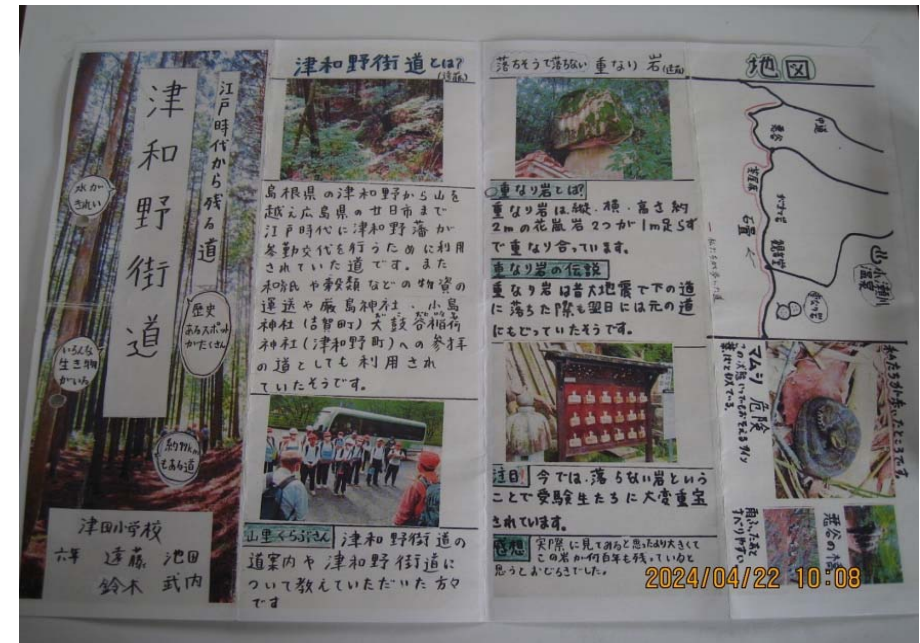 江戸時代から残る道
津和野街道
水が
きれい
歴史
あるスポット
がたくさん
いろんな
生き物
がいる
もある道
津田小学校
六年 遠藤 池田
鈴木 武内
津和野街道とは?
(遠藤)
島根県の津和野から山を
越え広島県の廿日市まで
江戸時代に津和野藩が
参勤交代を行うために利用
されていた道です。また
和紙や穀類などの物資の
運送や厳島神社、小島
神社(吉賀町)太鼓谷稲荷
神社(津和野町)への参拝
の道としても利用され
ていたそうです。
山里くらぶさん 津和野街道の
道案内や津和野街道に
ついて教えていただいた方々
です
落ちそうで落ちない 重なり岩
重なり岩とは?
重なり岩は、縦、横、高さ約
2mの花崗岩2つが1m足らず
で重なり合っています。
重なり岩の伝説
重なり岩は昔大地震で下の道
に落ちた際も翌日には元の道
にもどっていたそうです。
注目! 今では、落ちない岩という
ことで受験生たちに大変重宝
されています。
感想 実際に見てみると思ったより大きくて
この岩が何百年も残っていると
思うとおどろきでした。
地図
中道
悪谷
石畳
観音堂
重なり岩
小瀬川
温泉
私たちが歩いたところです。
マムシ 危険
悪谷の緑
雨ふったあと
すべりやすい
2024/04/22 10:08